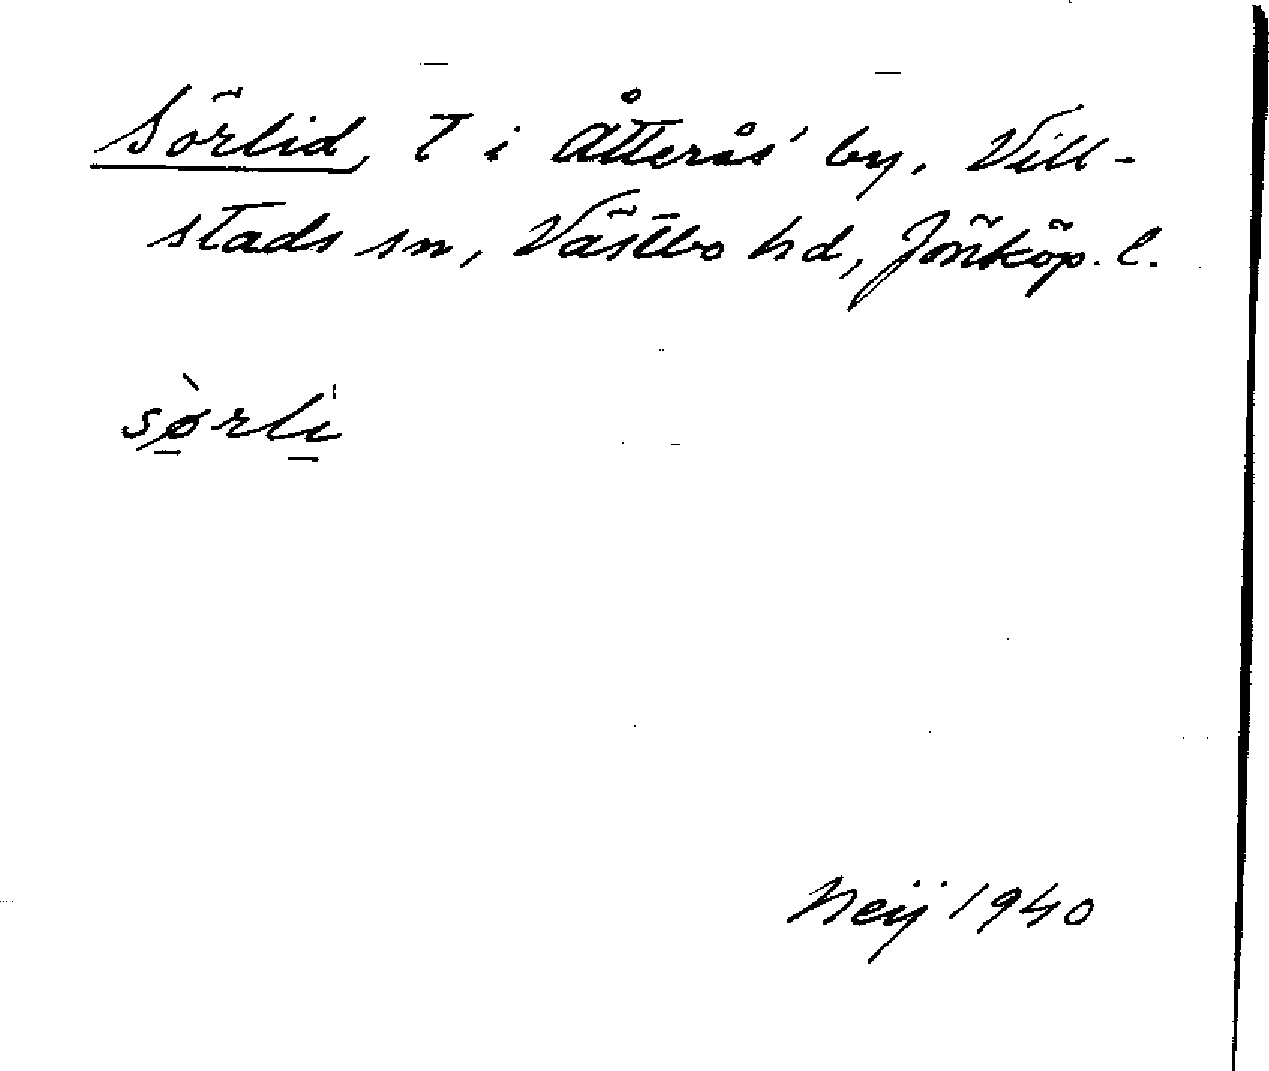 Sörlid, T i Åtterås' by, Vill-
stads sn, Västbo hd, Jönköp. l.
sø̀rli̍
Neij 1940